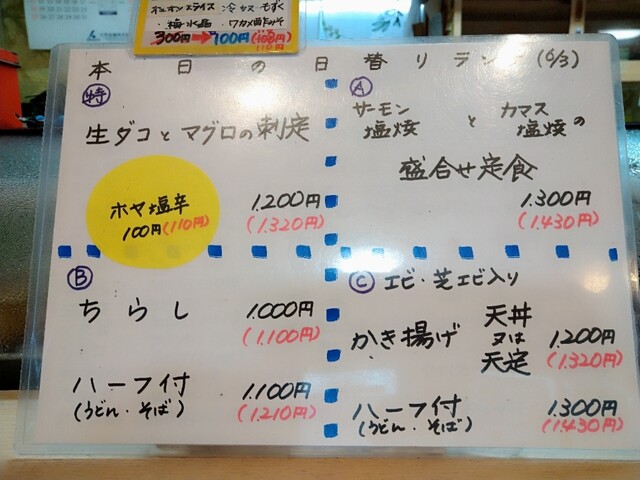 オニオンスライス 冷奴 もずく
梅水晶 ワカメ酢みそ
300円→100円(110円)
本日の日替りランチ(6/3)
特
生ダコとマグロの刺定
ホヤ塩辛
100円(110円)
1.200円
(1.320円)
A
サーモン塩焼とカマス塩焼の
盛合せ定食
1.300円
(1.430円)
B
ちらし 1.000円
(1.100円)
ハーフ付 1.100円
(うどん・そば) (1.210円)
C エビ・芝エビ入り
かき揚げ 天丼又は天定 1.200円
(1.320円)
ハーフ付 1.300円
(うどん・そば) (1.430円)